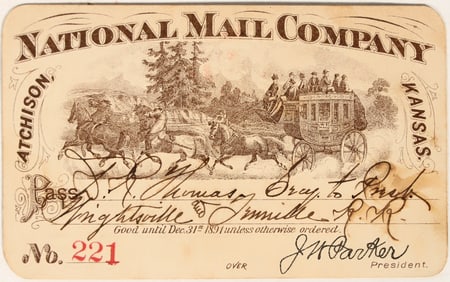 NATIONAL MAIL COMPANY
ATCHISON, KANSAS.
Pass J. R. Thomas, Secy to Prest.
Wrightsville and Tennille R. R.
Good until Dec. 31st 1891 unless otherwise ordered.
No. 221
J W Parker
OVER
President.